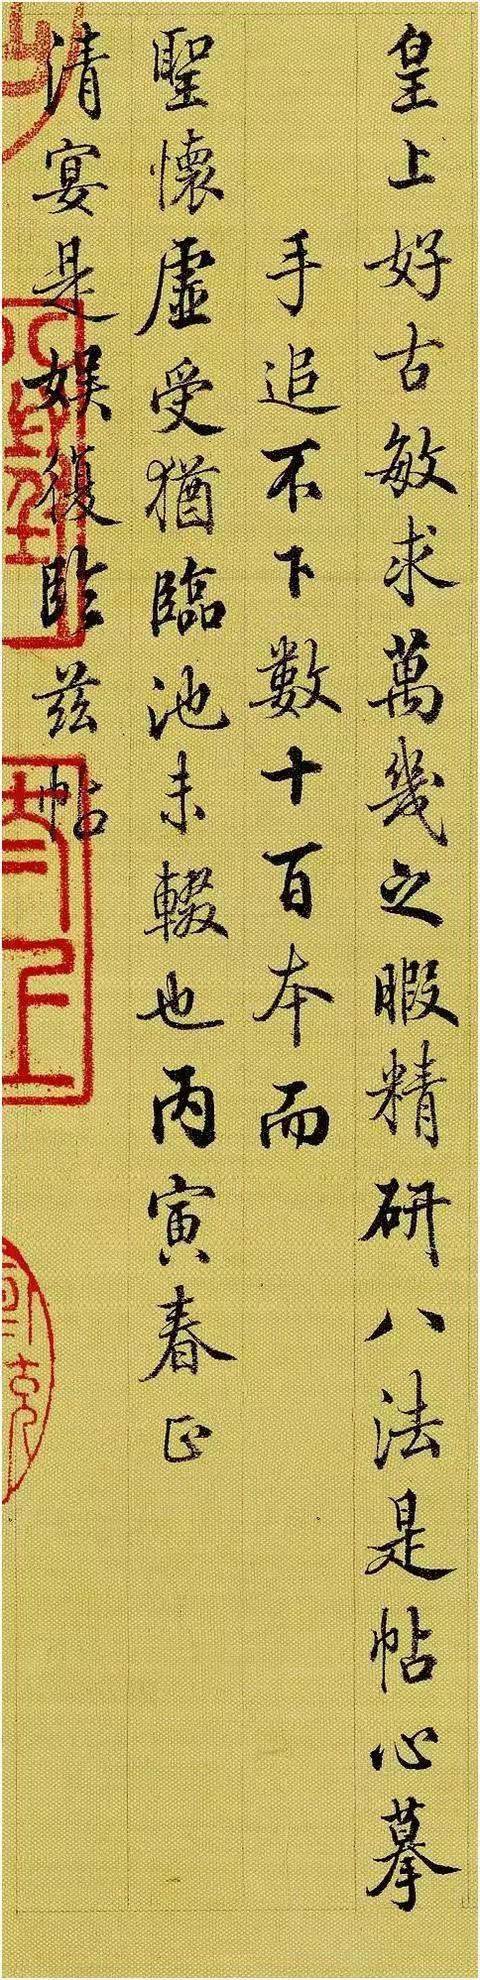 皇上好古敏求萬幾之暇精研八法是帖心摹
手追不下數十百本而
聖懷虛受猶臨池未輟也丙寅春正
清宴是娛復臨茲帖